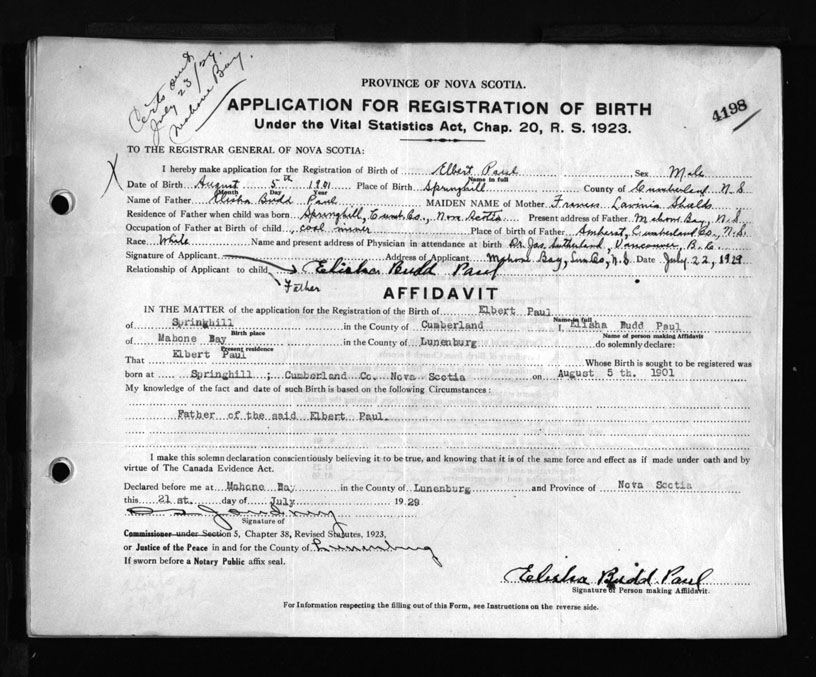 Certs out
July 23/29
Mahone Bay.
PROVINCE OF NOVA SCOTIA.
APPLICATION FOR REGISTRATION OF BIRTH
4198
Under the Vital Statistics Act, Chap. 20, R. S. 1923.
TO THE REGISTRAR GENERAL OF NOVA SCOTIA:
I hereby make application for the Registration of Birth of Elbert Paul Sex Male
Name in full
X Date of Birth August 5th 1901 Place of Birth Springhill County of Cumberland N S
Month Day Year
Name of Father Elisha Budd Paul MAIDEN NAME of Mother Frances Lavinia
Residence of Father when child was born Springhill, Cumb. Co., Nova Scotia Present address of Father Mahone Bay, N.S.
Occupation of Father at Birth of child coal miner Place of birth of Father Amherst, Cumberland Co., N.S.
Race White Name and present address of Physician in attendance at birth Dr. Jas. Sutherland, Vancouver, B.C.
Signature of Applicant Address of Applicant Mahone Bay, Lun Co, N.S. Date July 22, 1929
Relationship of Applicant to child Elisha Budd Paul
Father
AFFIDAVIT
IN THE MATTER of the application for the Registration of the Birth of Elbert Paul
Name in full
of Springhill in the County of Cumberland I, Elisha Budd Paul
Birth place Name of person making Affidavit
of Mahone Bay in the County of Lunenburg do solemnly declare:
Present residence
That Elbert Paul Whose Birth is sought to be registered was
born at Springhill ; Cumberland Co. Nova Scotia on August 5 th. 1901
My knowledge of the fact and date of such Birth is based on the following Circumstances:
Father of the said Elbert Paul.
I make this solemn declaration conscientiously believing it to be true, and knowing that it is of the same force and effect as if made under oath and by
virtue of The Canada Evidence Act.
Declared before me at Mahone Bay in the County of Lunenburg and Province of Nova Scotia
this 21 st. day of July 1929
Signature of
Commissioner under Section 5, Chapter 38, Revised Statutes, 1923,
or Justice of the Peace in and for the County of Lunenburg
If sworn before a Notary Public affix seal.
Elisha Budd Paul
Signature of Person making Affidavit.
For Information respecting the filling out of this Form, see Instructions on the reverse side.